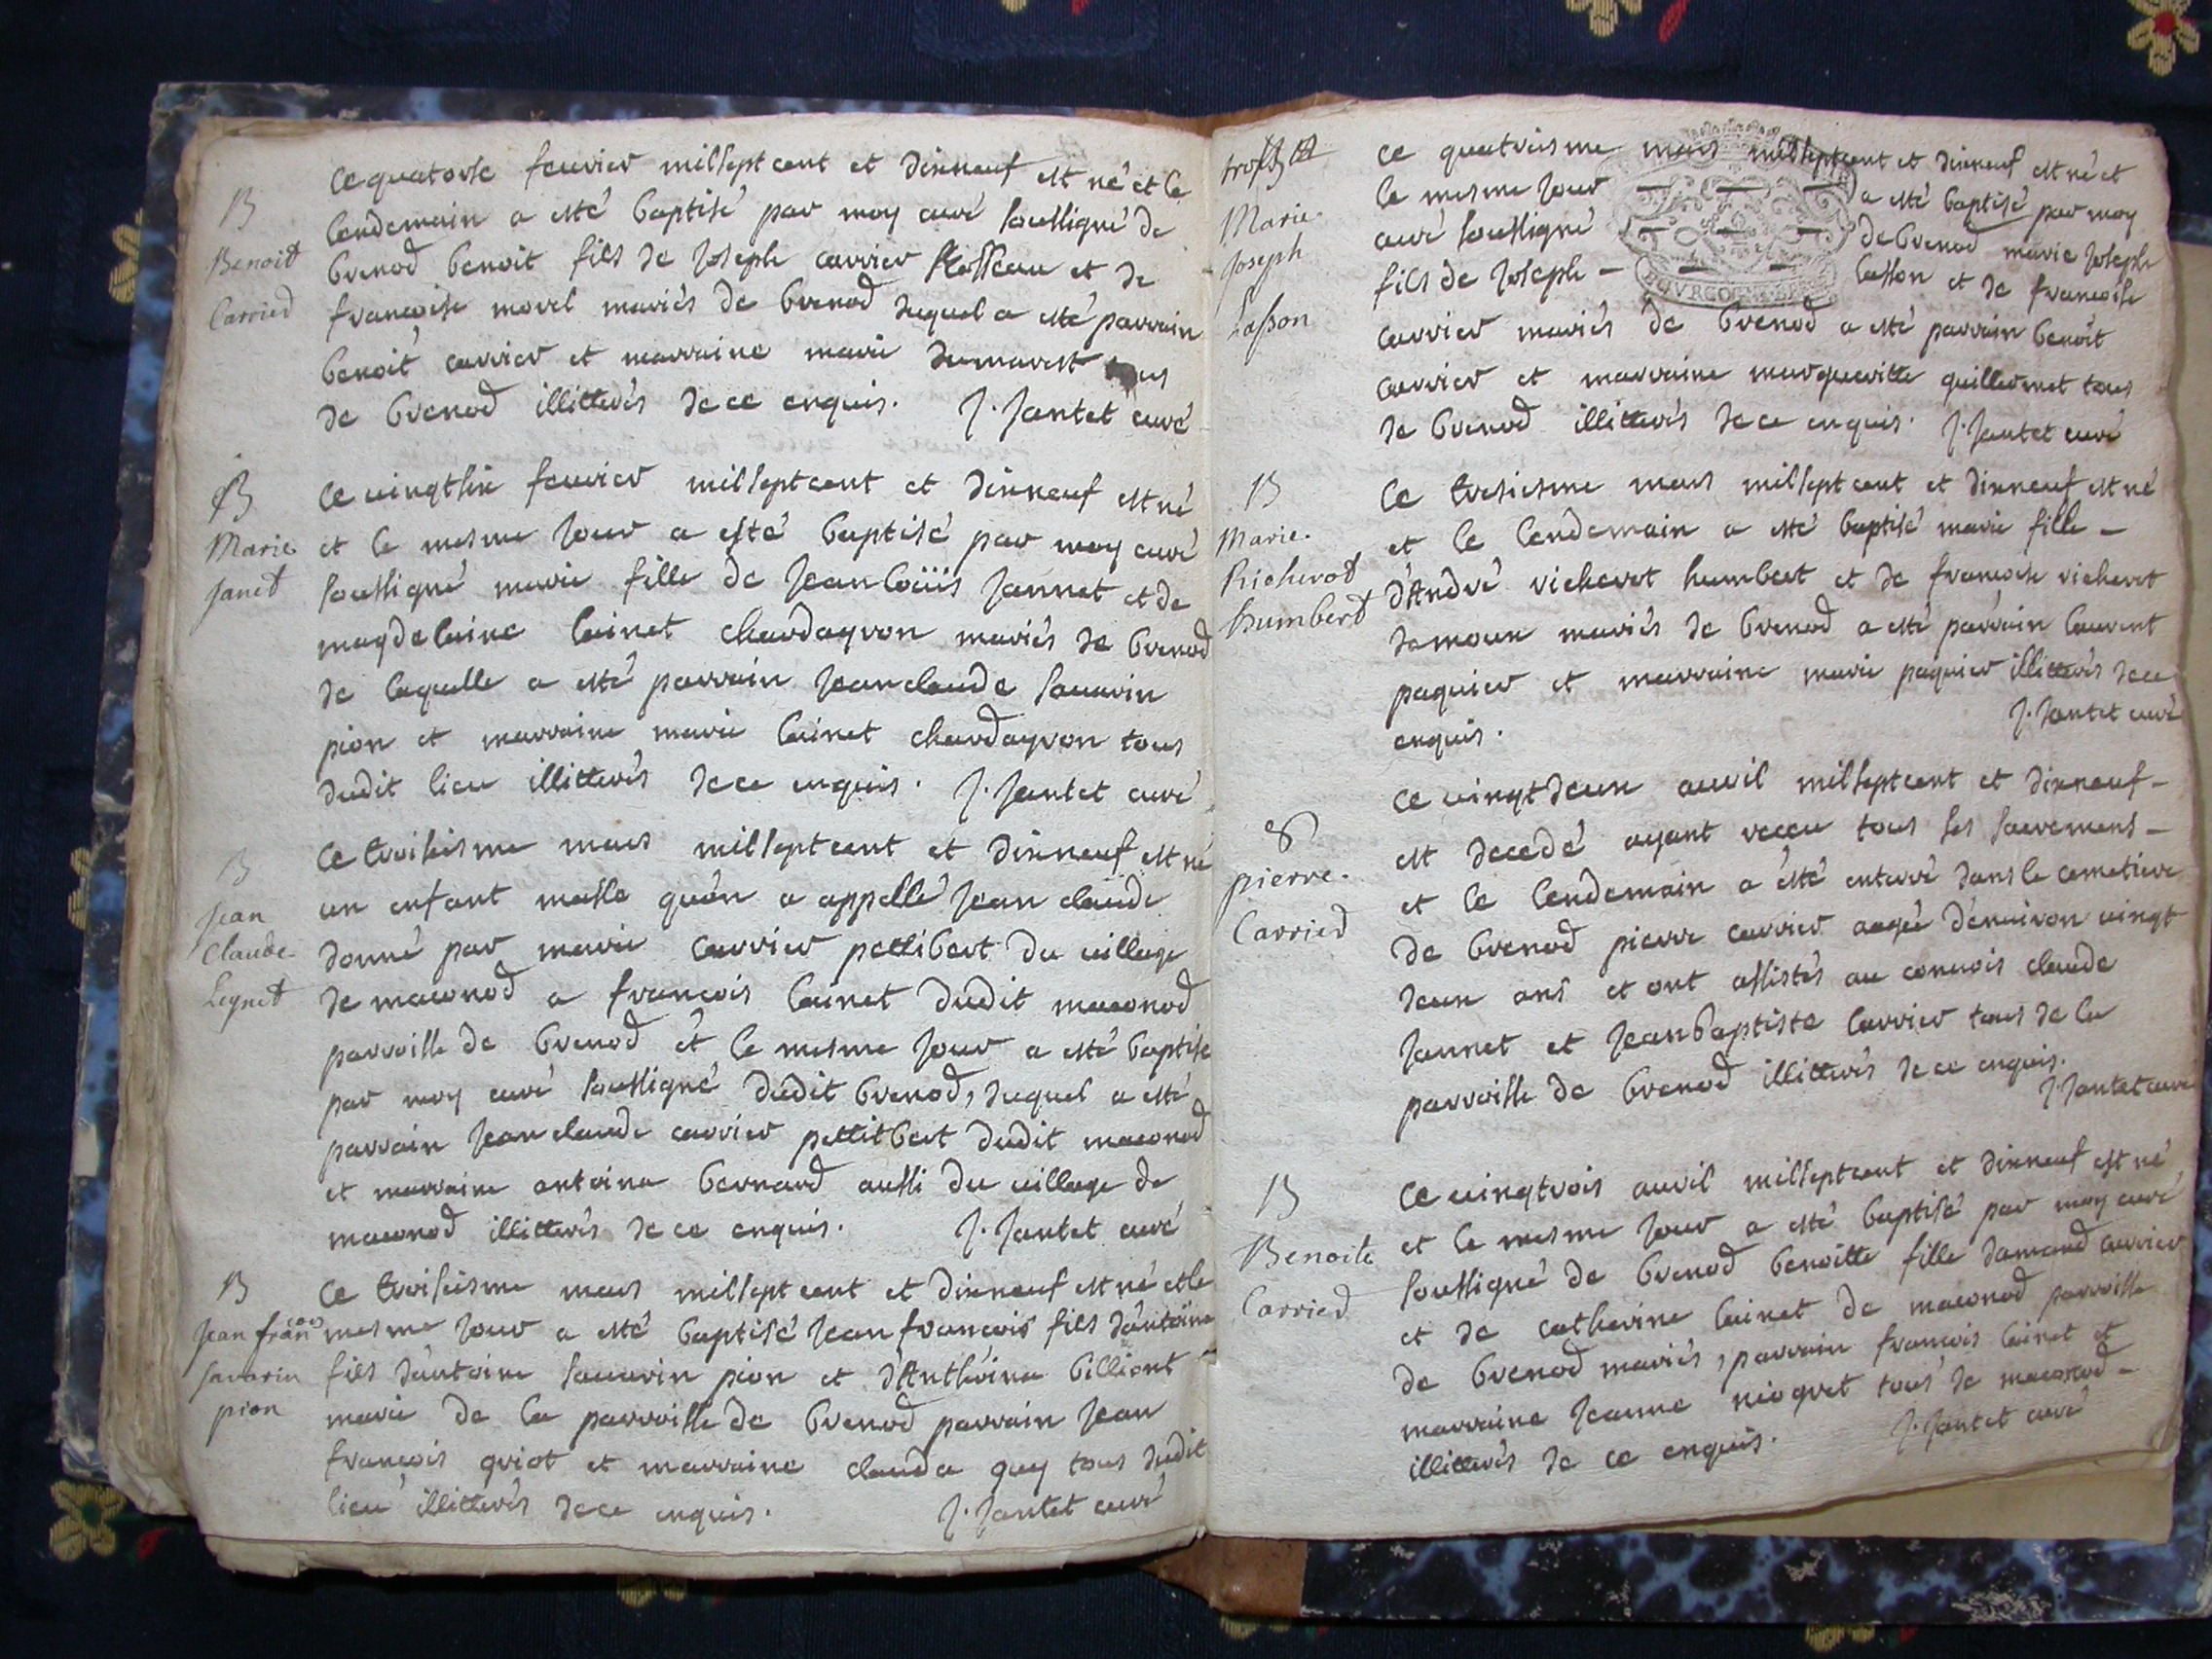 B
Benoit
Carried
ce quatorse feuvier mil sept cent et dixneuf est né et le
lendemain a esté baptisé par moy curé soussigné de
brenod benoit fils de Joseph carrier et de
francoise morel mariés de brenod duquel a esté parrain
benoit carrier et marraine marie dumarest
de brenod illitterés de ce enquis. J. Jantet curé
B
Marie
Janet
ce vingtsix feuvier mil sept cent et dixneuf est né
et le mesme jour a esté baptisé par moy curé
soussigné marie fille de Jean loüis Jannet et de
magdelaine lainet chardayron mariés de brenod
de laquelle a esté parrain Jean claude sauarin
pion et marraine marie lainet chardayron tous
dudit lieu illitterés de ce enquis. J. Jantet curé
B
Jean
Claude
Leynet
ce troisiesme mars mil sept cent et dixneuf est né
un enfant masle qu'on a appellé Jean claude
donné par marie carrier pettibert du village
de maconod a francois lainet dudit maconod
parroisse de brenod et le mesme jour a esté baptisé
par moy curé soussigné dudit brenod, duquel a esté
parrain Jean claude carrier pettitbert dudit maconod
et marraine antoina bernard aussi du village de
maconod illitterés de ce enquis. J. Jantet curé
B
Jean francois
savarin
pion
ce troisiesme mars mil sept cent et dixneuf est né et le
mesme jour a esté baptisé Jean francois fils d'antoine
fils d'antoine sauarin pion et d'Anthoina billiont
marié de la parroisse de brenod parrain Jean
francois griot et marraine clauda guy tous dudit
lieu illitterés de ce enquis. J. Jantet curé
Marie
Joseph
Lasson
ce quatriesme mars mil sept cent et dixneuf est né et
le mesme jour a esté baptisé par moy
curé soussigné de brenod marie Joseph
fils de Joseph - lasson et de francoise
carrier mariés de brenod a esté parrain benoit
carrier et marraine margueritte guillermet tous
de brenod illitterés de ce enquis. J. Jantet curé
B
Marie
Richerot
humbert
ce tresiesme mars mil sept cent et dixneuf est né
et le lendemain a esté baptisé marie fille -
d'André richerot humbert et de francoise richerot
damoux mariés de brenod a esté parrain laurent
paquier et marraine marie paquier illitterés de ce
enquis. J. Jantet curé
pierre
Carried
ce vingt deux auril mil sept cent et dixneuf -
est decedé ayant receu tous ses sacremens -
et le lendemain a esté enterré dans le cemetiere
de brenod pierre carrier aagé d'enuiron vingt
deux ans et ont assistés au conuois claude
Jannet et Jean baptiste carrier tous de la
parroisse de brenod illitterés de ce enquis.
J. Jantet curé
B
Benoite
Carried
ce vingt trois auril mil sept cent et dixneuf est né
et le mesme jour a esté baptisé par moy curé
soussigné de brenod benoitte fille damand carrier
et de catherine lainet de maconod parroisse
de brenod mariés, parrain francois lainet et
marraine Jeanne niogret tous de maconod -
illitterés de ce enquis. J. Jantet curé